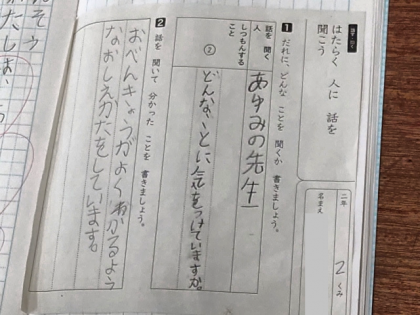 はたらく 人に 話を
聞こう
二年
2 くみ
名まえ
1 だれに、どんな ことを 聞くか 書きましょう。
話を 聞く
人
あゆみの先生
しつもんする
こと
②
どんなことに気をつけていますか。
2 話を 聞いて 分かった ことを 書きましょう。
おべんきょうがよくわかるよう
なおしえかたをしています。